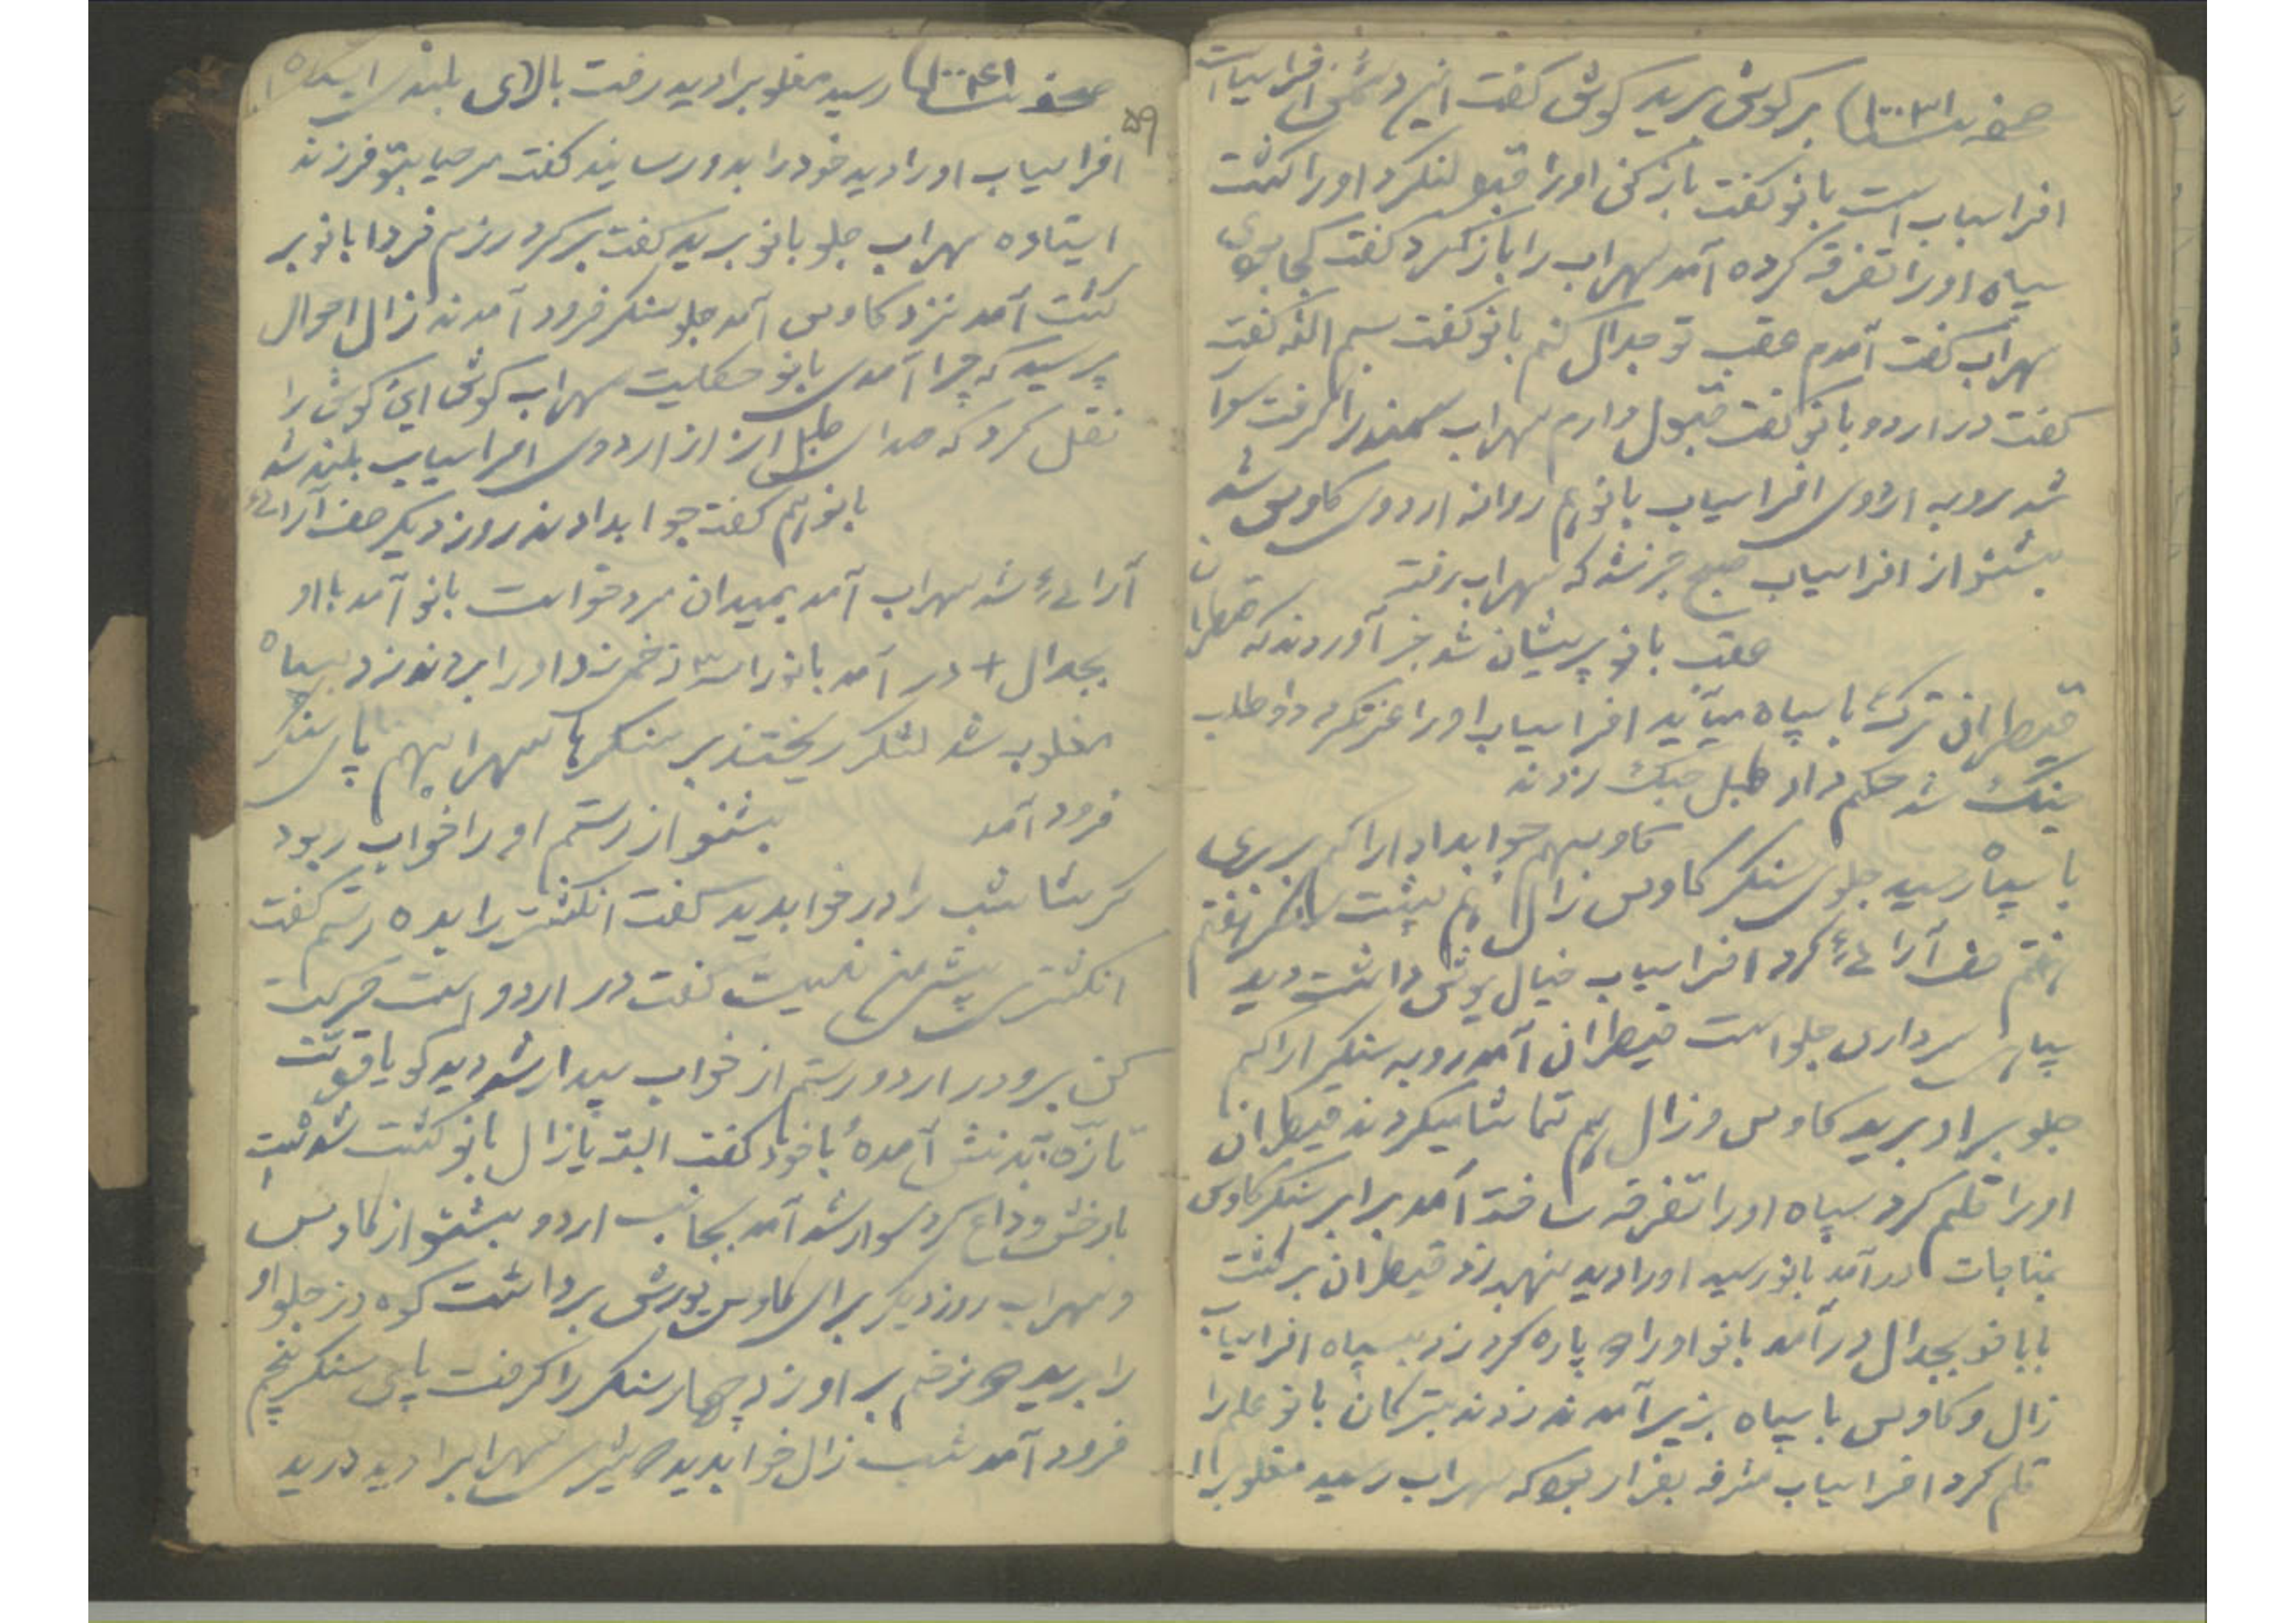 صفحه ۱۰۰۳۱ بر کوش برید کوش گفت این دشمن افراسیاب است
افراسیاب است بانو گفت باز کنی اورا قبول نکرد اورا کشت
سپاه اورا تفرقه کرده آمد سهراب را باز کرد گفت کجا بودی
سهراب گفت آمدم عقب تو جدال کنم بانو گفت بسم الله گفت
گفت در اردو بانو گفت قبول دارم سهراب سمند را گرفت سوار
شد رو به اردوی افراسیاب بانو هم روانه اردوی کاوس شد
بشنو از افراسیاب صبح خبر شد که سهراب رفته
عقب بانو پریشان شد خبر آوردند که قیطران
قیطران ترک با سپاه میآید افراسیاب اورا عزت کرد داوطلب
جنگ شد حکم داد طبل جنگ زدند
کاوس هم جواب داد اراکم بربری
با سپاه رسید جلوی سنگر کاوس زال هم پشت سنگر هفتم
هفتم صف آرائی کرد افراسیاب خیال یورش داشت دید
سپاهی سرداری جلو است قیطران آمد رو به سنگر اراکم
جلو بر او برید کاوس و زال هم تماشا میکردند قیطران
اورا قلم کرد سپاه اورا تفرقه ساخته آمد برابر سنگر کاوس
بمناجات در آمد بانو رسید اورا دید نهیب زد قیطران برگشت
با بانو بجدال در آمد بانو اورا دو پاره کرد زد بسپاه افراسیاب
زال و کاوس با سپاه بزیر آمدند زدند بترکان بانو علم را
قلم کرد افراسیاب بفرار بود که سهراب رسید مغلوبه را
۵۹
صفحه ۱۰۰۴۱ رسید مغلوبه را دید رفت بالای بلندی ایستاد
افراسیاب اورا دید خود را بدو رسانید گفت مرحبا بتو فرزند
ایستاده سهراب جلو بانو برید گفت برگرد رزم فردا بانو بر
گشت آمد نزد کاوس آمد جلو سنگر فرود آمدند زال احوال
پرسید که چرا آمدی بانو حکایت سهراب کوش این کوش را
نقل کرد که صدای طبل از اردوی افراسیاب بلند شد
بانو هم گفت جواب دادند روز دیگر صف آرائی
آرائی شد سهراب آمد بمیدان مرد خواست بانو آمد با او
بجدال + در آمد بانو را ۳ زخم زد اورا بردند زد بسپاه
مغلوب شد لشکر ریختند بر سنگرها سهراب هم پای سنگر
فرود آمد بشنو از رستم اورا خواب ربود
گرشاسب را در خواب دید گفت انگشتر را بده رستم گفت
انگشتری پیش من نیست گفت در اردو است حرکت
کن برو در اردو رستم از خواب بیدار شد دید گویا قوت
تازه به تنش آمده با خود گفت البته یا زال یا بانو کشته شده است
با رخش وداع کرد سوار شد آمد بجانب اردو بشنو از کاوس
و سهراب روز دیگر برای کاوس یورش برداشت گودرز جلو او
را برید دو زخم بر او زد چهار سنگر را گرفت پای سنگر پنجم
فرود آمد شب زال خواب دید شیری سهراب را درید